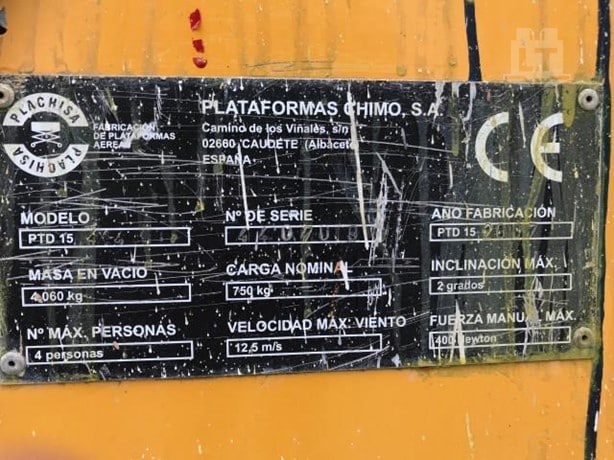 PLACHISA
PLACHISA
FABRICACIÓN
DE PLATAFORMAS
AEREAS
PLATAFORMAS CHIMO, S.A.
Camino de los Viñales, s/n
02660 CAUDETE (Albacete)
ESPAÑA
CE
MODELO
PTD 15
Nº DE SERIE
AÑO FABRICACIÓN
PTD 15
MASA EN VACIO
4.060 kg
CARGA NOMINAL
750 kg
INCLINACIÓN MÁX.
2 grados
Nº MÁX. PERSONAS
4 personas
VELOCIDAD MÁX. VIENTO
12,5 m/s
FUERZA MANUAL MÁX.
400 Newton